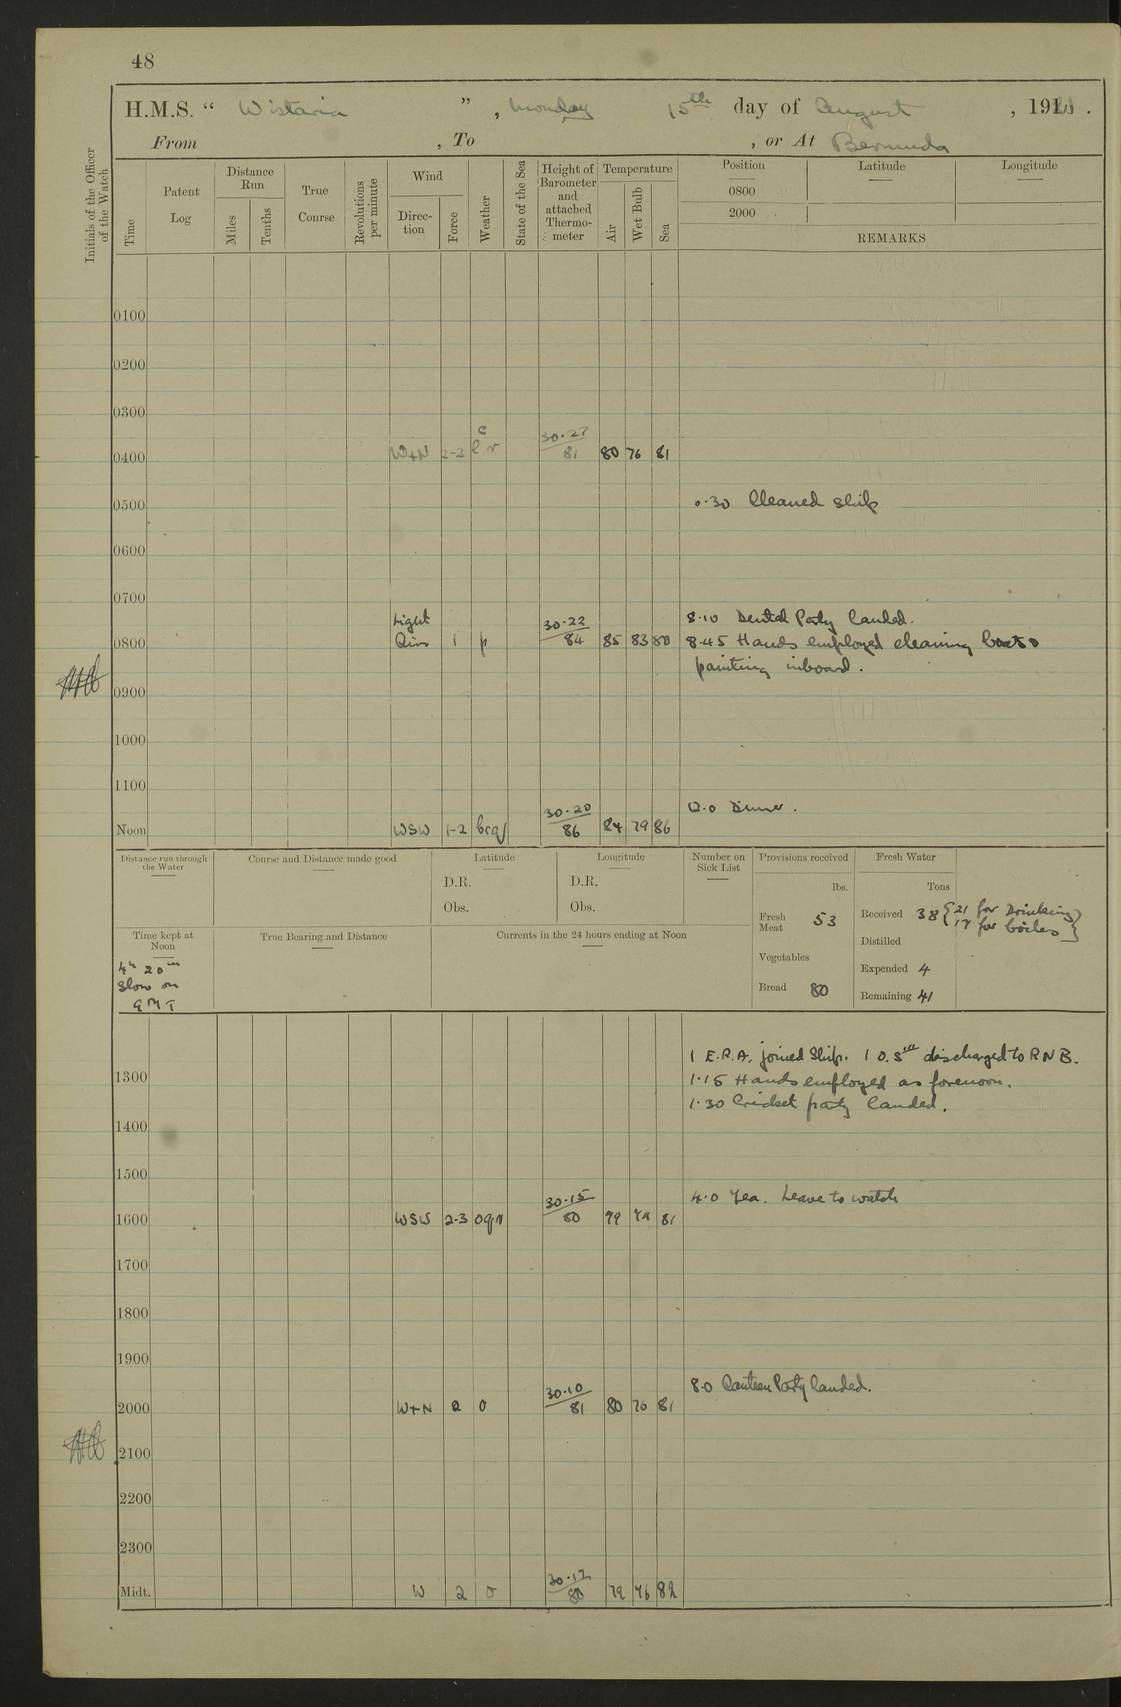 48
H.M.S. " Wistaria " , Monday 15th day of August , 1921 .
From , To , or At Bermuda
Initials of the Officer of the Watch
Time Patent Log Distance Run Miles Tenths True Course Revolutions per minute Wind Direc-tion Force Weather State of the Sea Height of Barometer and attached Thermo-meter Temperature Air Wet Bulb Sea Position Latitude Longitude
0800
2000
REMARKS
0100
0200
0300
0400 W+N 2-3 c l r 30.27 81 80 76 81
0500 Cleaned ship
0600
0700
8.10 Dental Party landed.
0800 Light Airs 1 p 30.22 84 85 83 80 8.45 Hands employed cleaning boats &
painting inboard.
0900
1000
1100
12.0 Dinner.
Noon WSW 1-2 bcq 30.20 86 84 79 86
Distance run through the Water Course and Distance made good Latitude Longitude Number on Sick List Provisions received Fresh Water
D.R. D.R. lbs. Tons
Obs. Obs. Fresh Meat 53 Received 38 { 21 for Drinking
17 for boilers }
Time kept at Noon True Bearing and Distance Currents in the 24 hours ending at Noon Distilled
4h 20m Vegetables
slow on Expended 4
GMT Bread 80 Remaining 41
1 E.R.A. joined Ship. 1 O. discharged to RNB.
1300 1.15 Hands employed as forenoon.
1.30 Cricket party landed.
1400
1500
4.0 Tea. Leave to watch
1600 WSW 2-3 oqr 30.15 80 79 81
1700
1800
1900
8.0 Canteen Party landed.
2000 W+N 2 o 30.10 81 80 76 81
2100
2200
2300
Midt. W 2 o 30.12 80 79 76 82